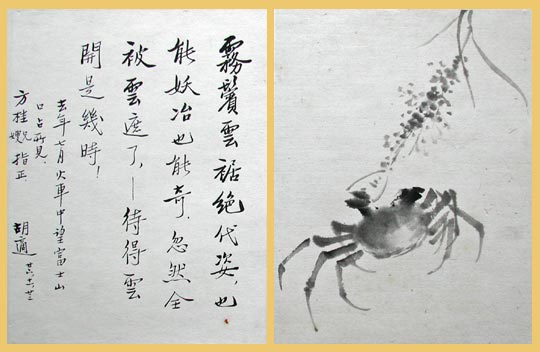 霧鬢雲裾絕代姿,也
能妖冶也能奇.忽然全
被雲遮了,—待得雲
開是幾時!
去年七月火車中望富士山
口占所見.
方桂兄嫂指正.
胡適 廿六、六、廿三